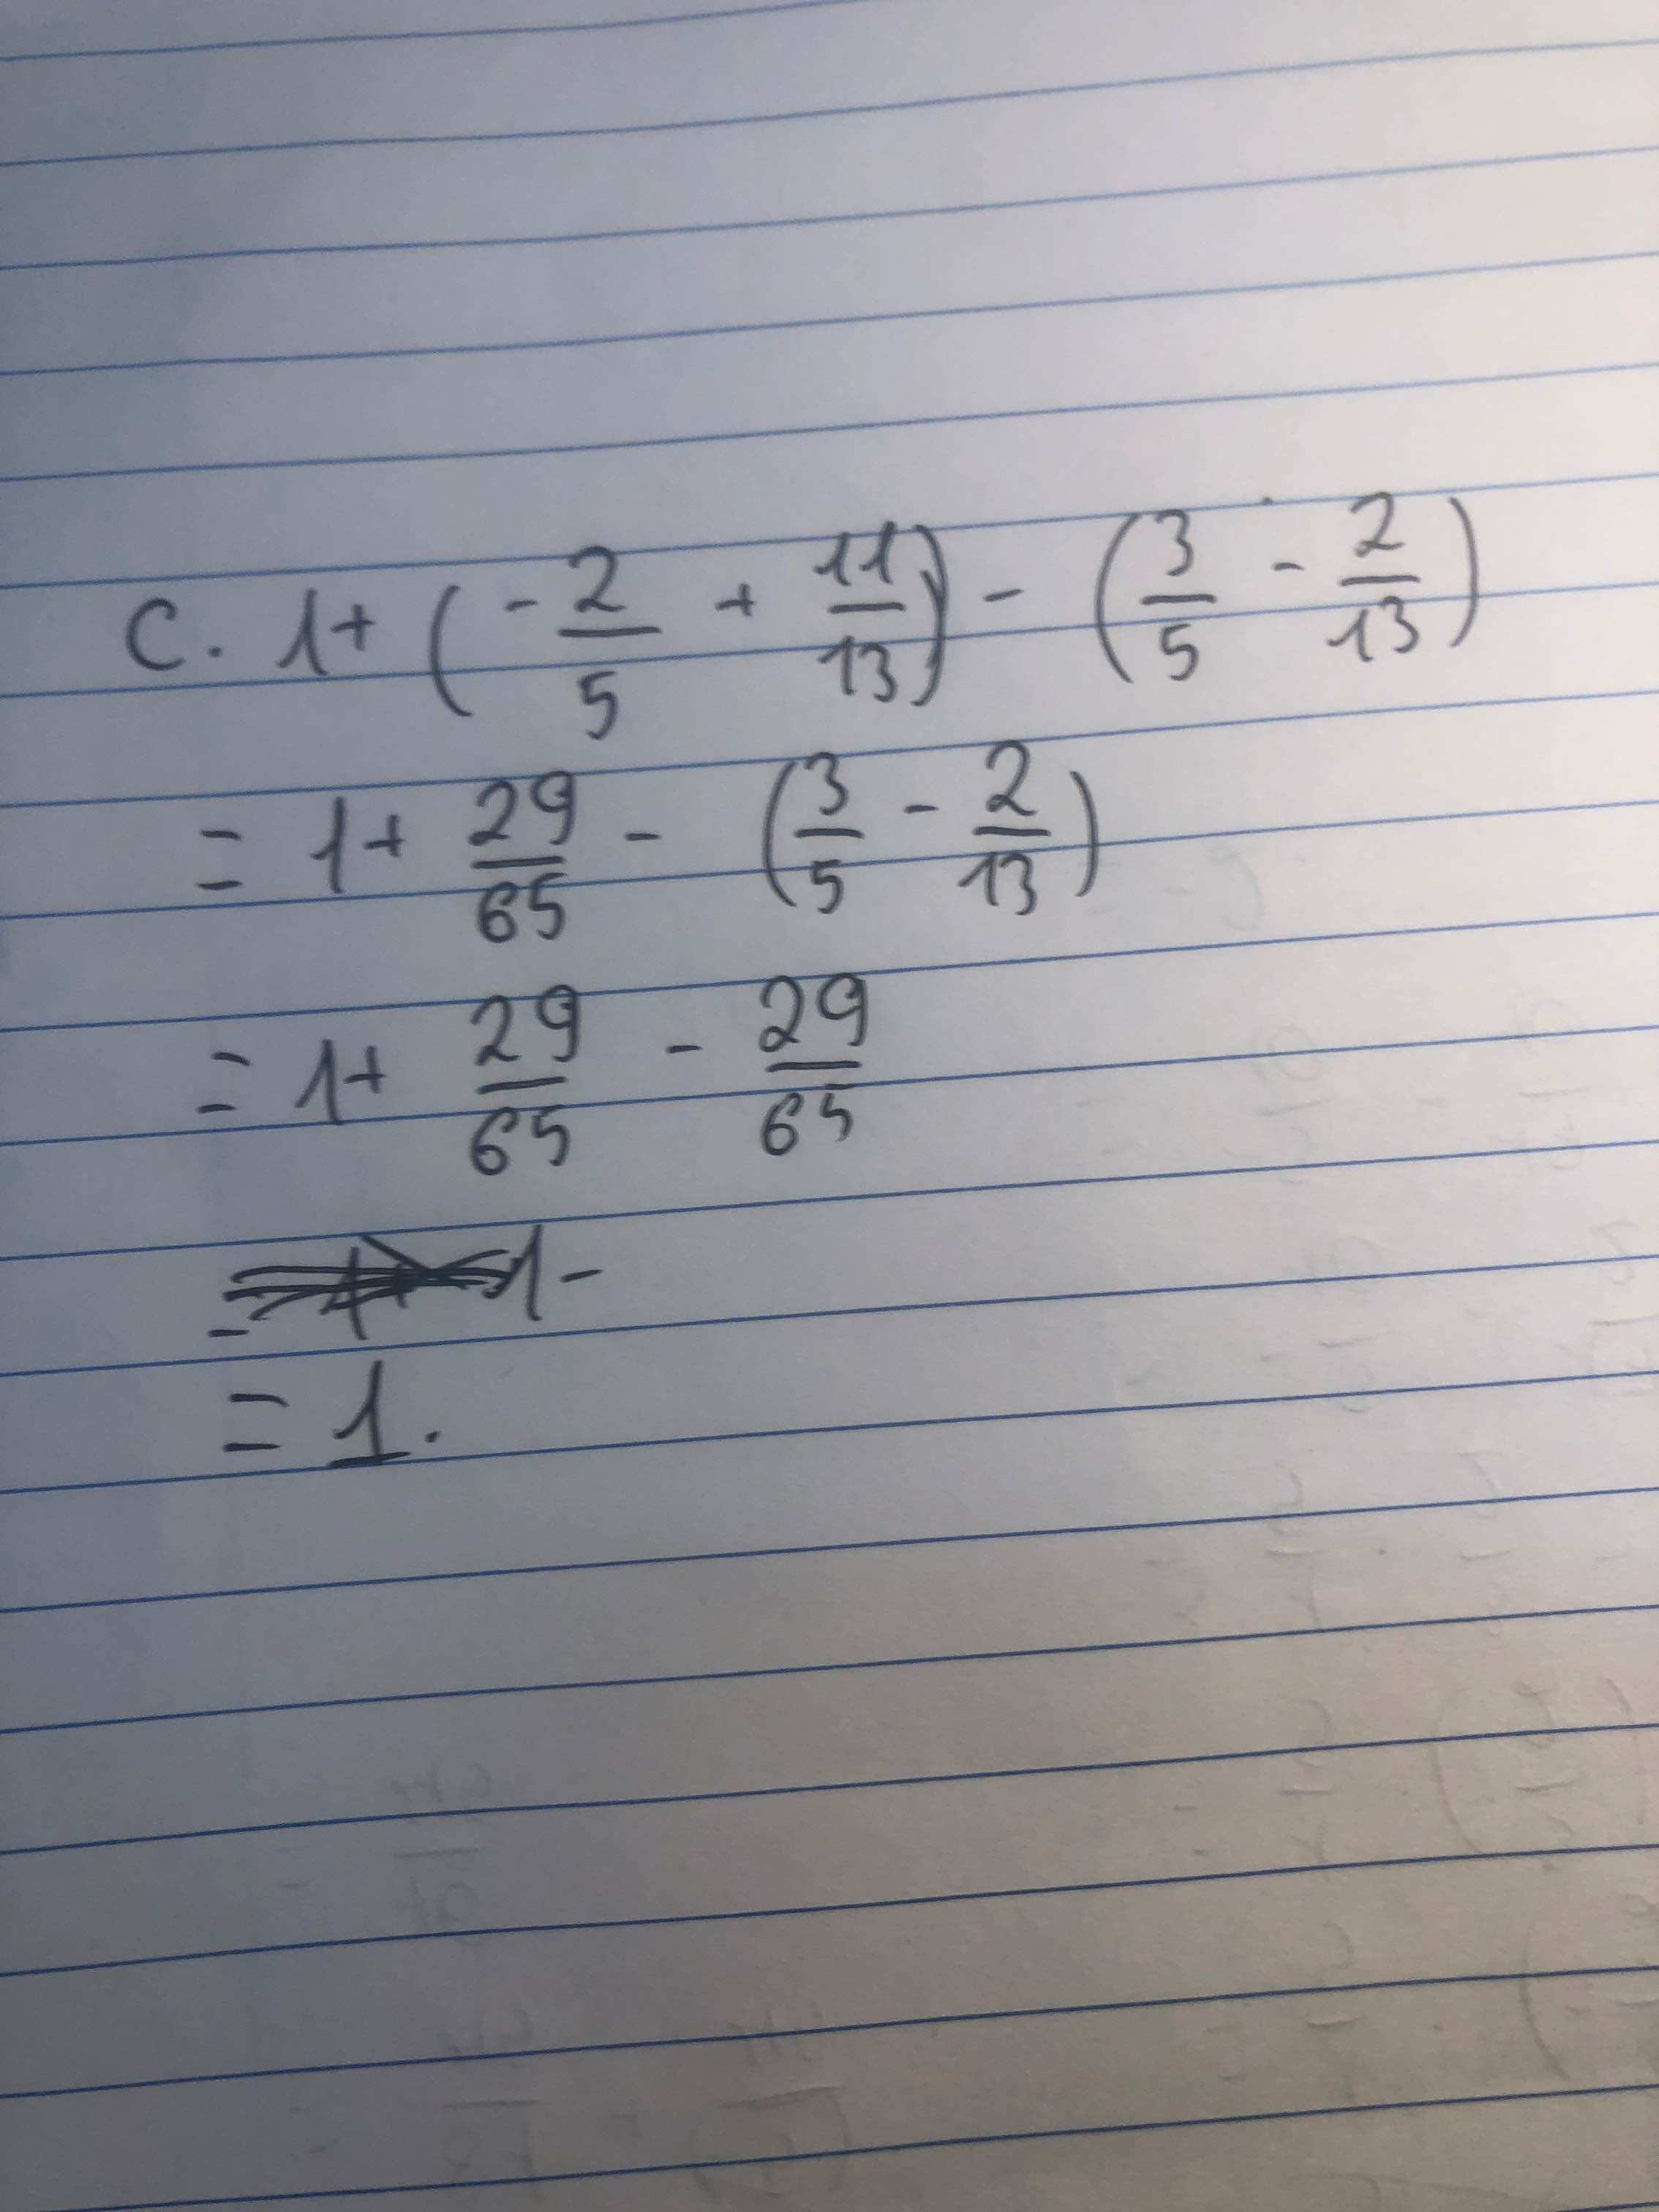 C. 1 + (-2/5 + 11/13) - (3/5 - 2/13)
= 1 + 29/65 - (3/5 - 2/13)
= 1 + 29/65 - 29/65
= 1.